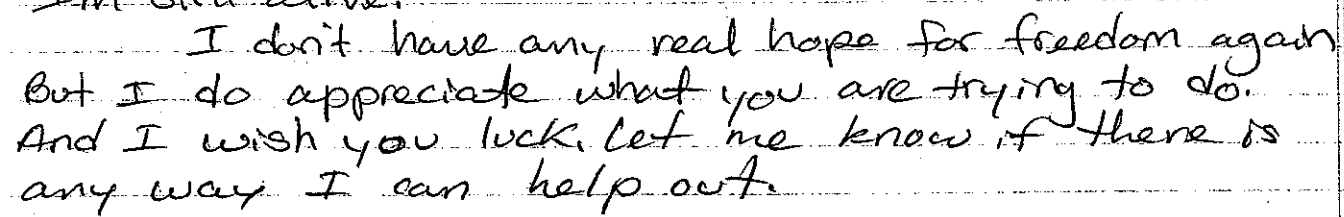 I'm still alive.
I don't have any real hope for freedom again
But I do appreciate what you are trying to do.
And I wish you luck. Let me know if there is
any way I can help out.